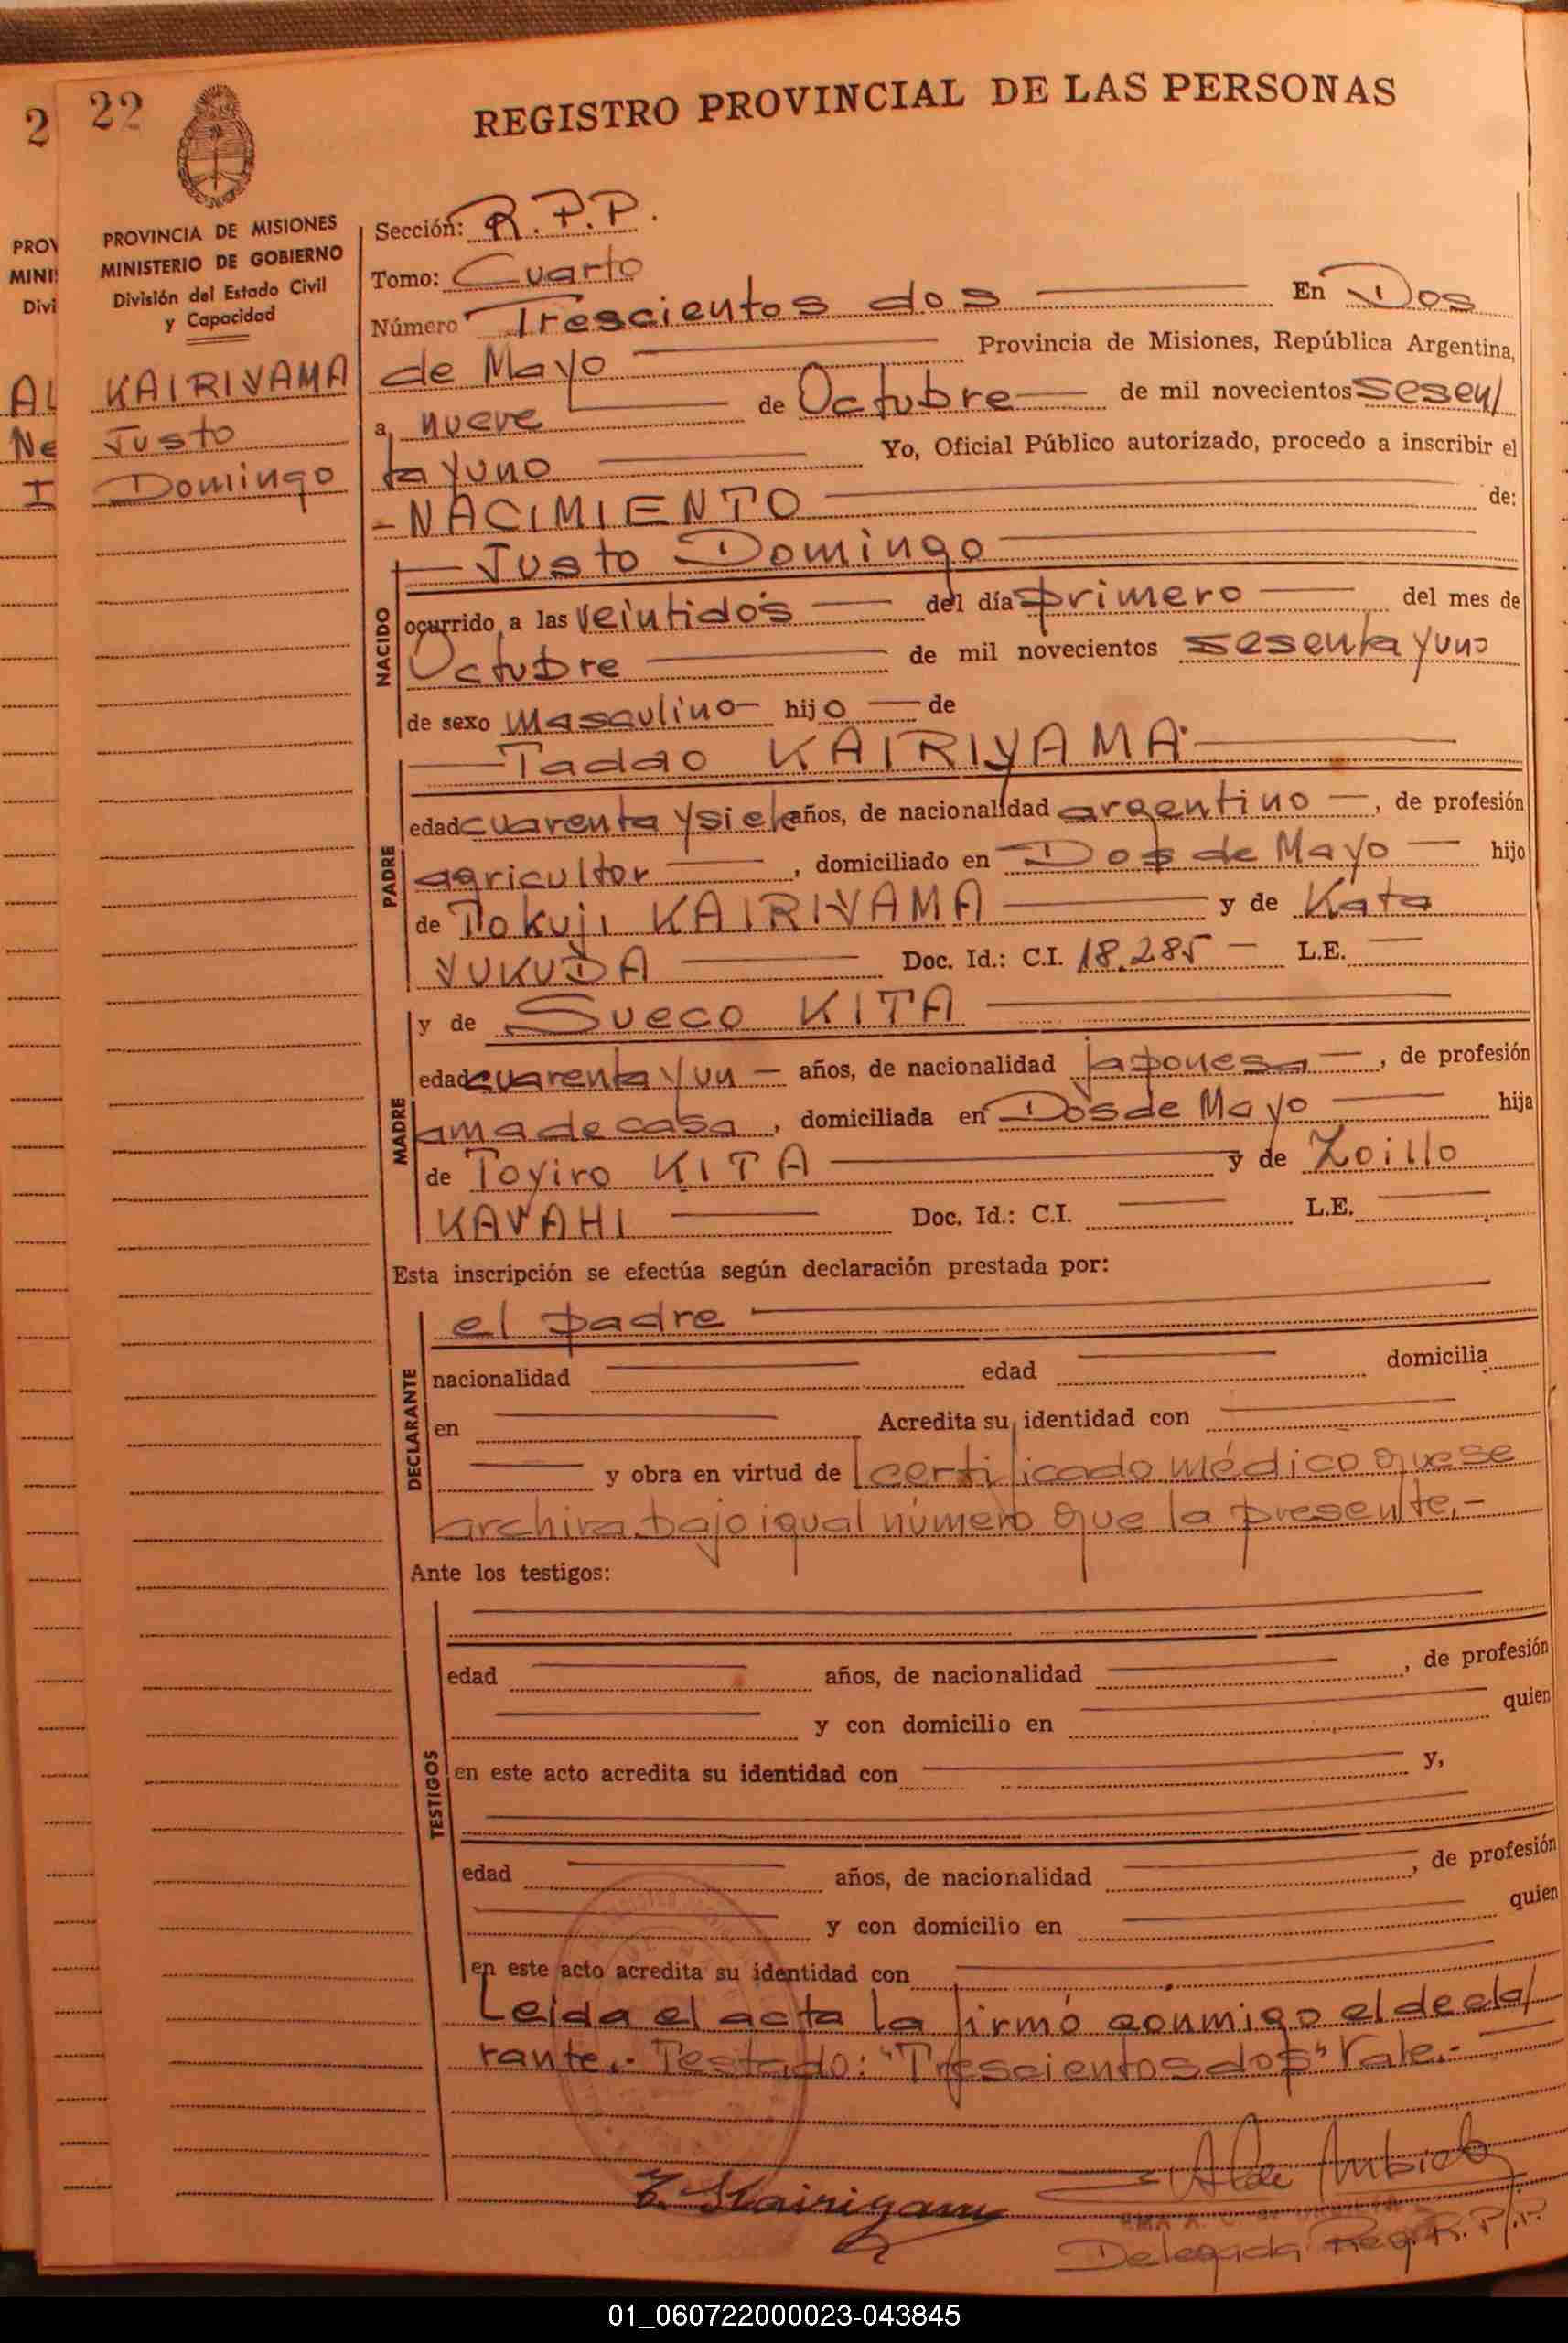 2
22
REGISTRO PROVINCIAL DE LAS PERSONAS
PROV
MINI
Divi
AL
Ne
I
PROVINCIA DE MISIONES
MINISTERIO DE GOBIERNO
División del Estado Civil
y Capacidad
KAIRIYAMA
Justo
Domingo
Sección: R.P.P.
Tomo: Cuarto
Número Trescientos dos En Dos
de Mayo Provincia de Misiones, República Argentina,
a nueve de Octubre de mil novecientos sesen/
ta y uno Yo, Oficial Público autorizado, procedo a inscribir el
- NACIMIENTO de:
Justo Domingo
NACIDO
ocurrido a las veintidós del día primero del mes de
Octubre de mil novecientos sesenta y uno
de sexo masculino hijo de
Tadao KAIRIYAMA
PADRE
edad cuarenta y siete años, de nacionalidad argentino, de profesión
agricultor, domiciliado en Dos de Mayo hijo
de Tokuji KAIRIYAMA y de Kata
YUKUDA Doc. Id.: C.I. 18.285 L.E.
y de Sueco KITA
MADRE
edad cuarenta y un años, de nacionalidad japonesa, de profesión
ama de casa, domiciliada en Dos de Mayo hija
de Toyiro KITA y de Zoillo
KAVAHI Doc. Id.: C.I. L.E.
Esta inscripción se efectúa según declaración prestada por:
DECLARANTE
el padre
nacionalidad edad domicilia
en Acredita su identidad con
y obra en virtud de certificado médico que se
archiva bajo igual número que la presente.-
Ante los testigos:
TESTIGOS
edad años, de nacionalidad , de profesión
y con domicilio en quien
en este acto acredita su identidad con y,
edad años, de nacionalidad , de profesión
y con domicilio en quien
en este acto acredita su identidad con
Leída el acta la firmó conmigo el decla/
rante.- Testado: "Trescientos dos" Vale.-
T. Kairiyama
Delegada Reg. R.P.P.
01_060722000023-043845